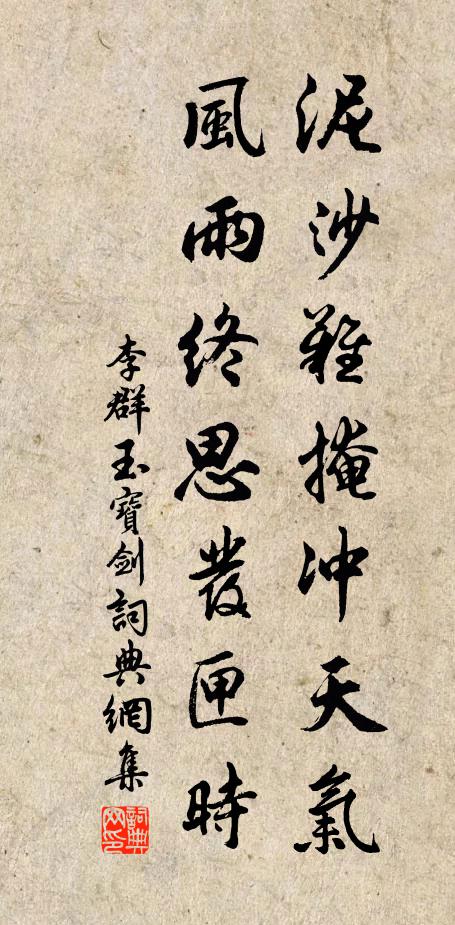 泥沙難掩冲天氣
風雨終思發匣時
李群玉寶劍詞典網集
詞典網印